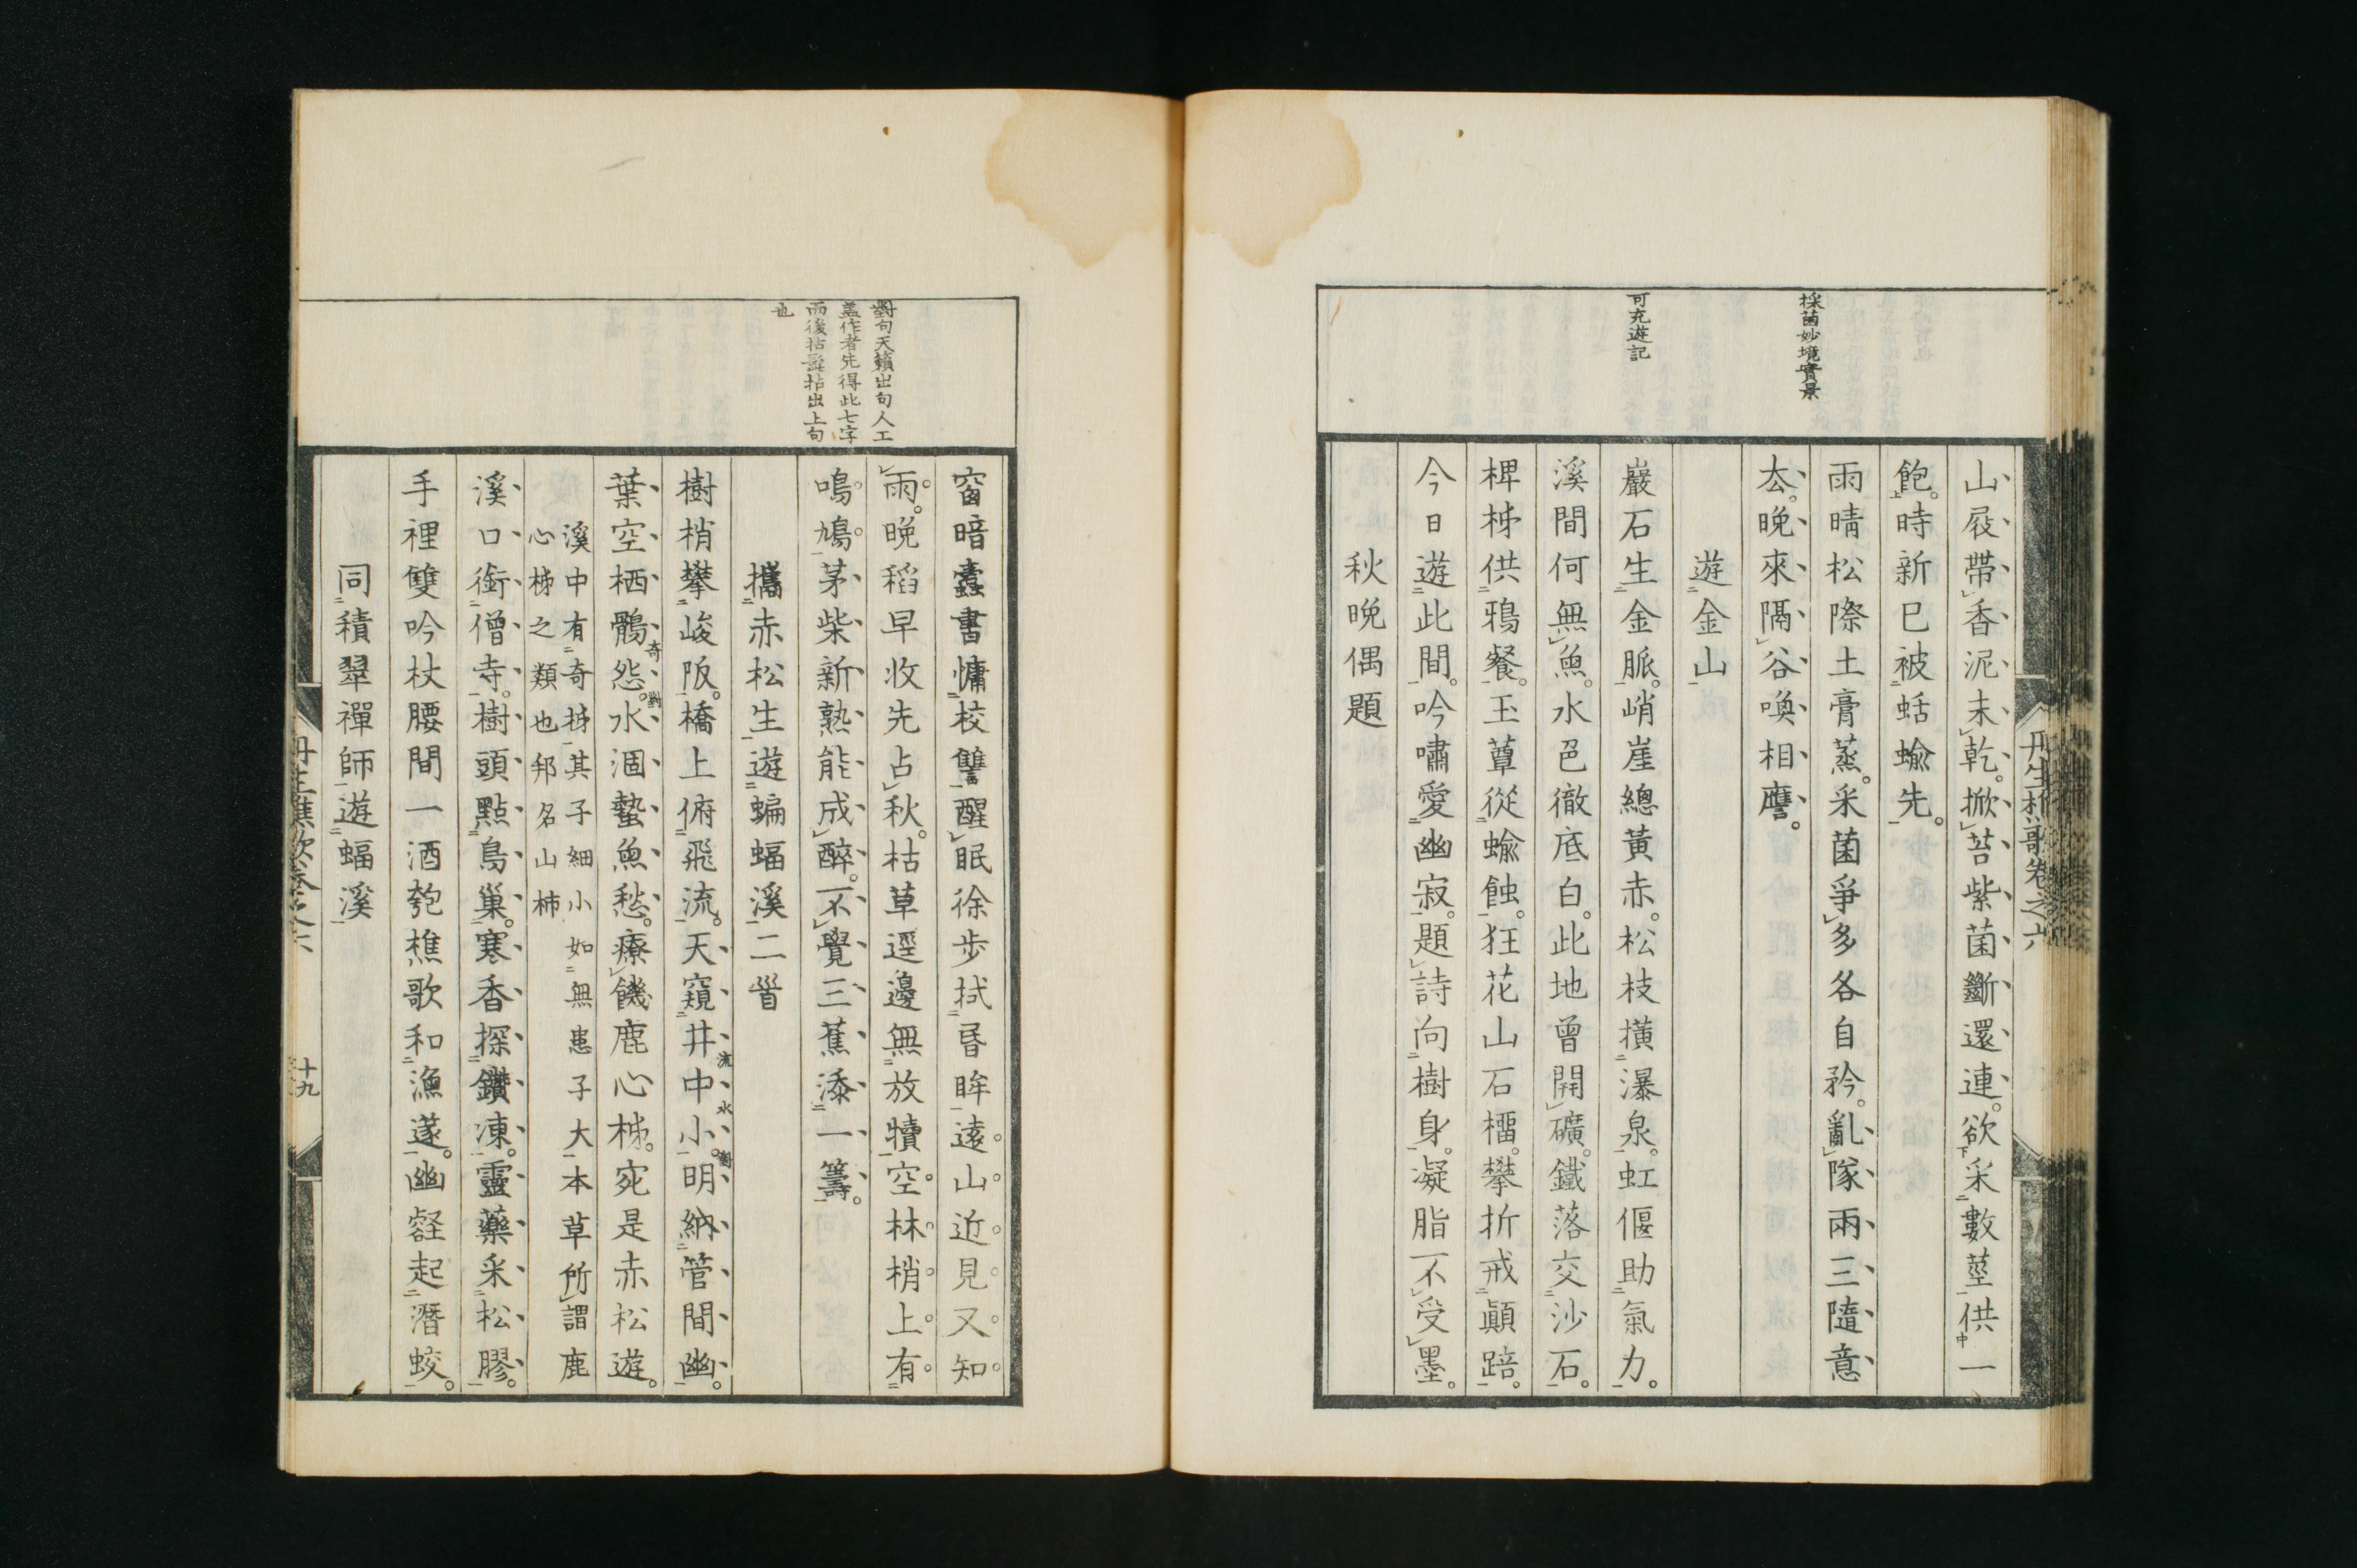 採菌妙境實景
可充遊記
丹生樵歌卷之六
山屐帶香泥末乾掀苔紫菌斷還連欲采數莖供一
飽時新巳被蛞蝓先
雨晴松際土膏蒸采菌爭多各自矜亂隊兩三隨意
厺晩來隔谷喚相譍
遊金山
巖石生金脈峭崖總黃赤松枝橫瀑泉虹偃助氣力
溪間何無魚水色徹底白此地曾開礦鐵落交沙石
椑柹供鴉餐玉蕈從蝓蝕狂花山石榴攀折戒顚踣
今日遊此間吟嘯愛幽寂題詩向樹身凝脂不受墨
秋晩偶題
對句天籟出句人工
盖作者先得此七字
而後拈髭拈出上句
也
窗暗蠹書慵校讐醒眠徐步拭昬眸遠山近見又知
雨晩稻早收先占秋枯草逕邊無放犢空林梢上有
鳴鳩茅柴新熟能成醉不覺三蕉添一籌
攜赤松生遊蝙蝠溪二首
樹梢攀峻阪橋上俯飛流天窺井中小明納管間幽
流水對
葉空栖鶻怨水涸蟄魚愁療饑鹿心柹宛是赤松遊
奇對
溪中有奇柹其子細小如無患子大本草所謂鹿
心柹之類也邦名山柿
溪口銜僧寺樹頭點鳥巢寒香探鑽凍靈藥采松膠
手裡雙吟杖腰間一酒匏樵歌和漁遂幽壑起潛蛟
同積翠禪師遊蝠溪
丹生樵歌卷之六
十九